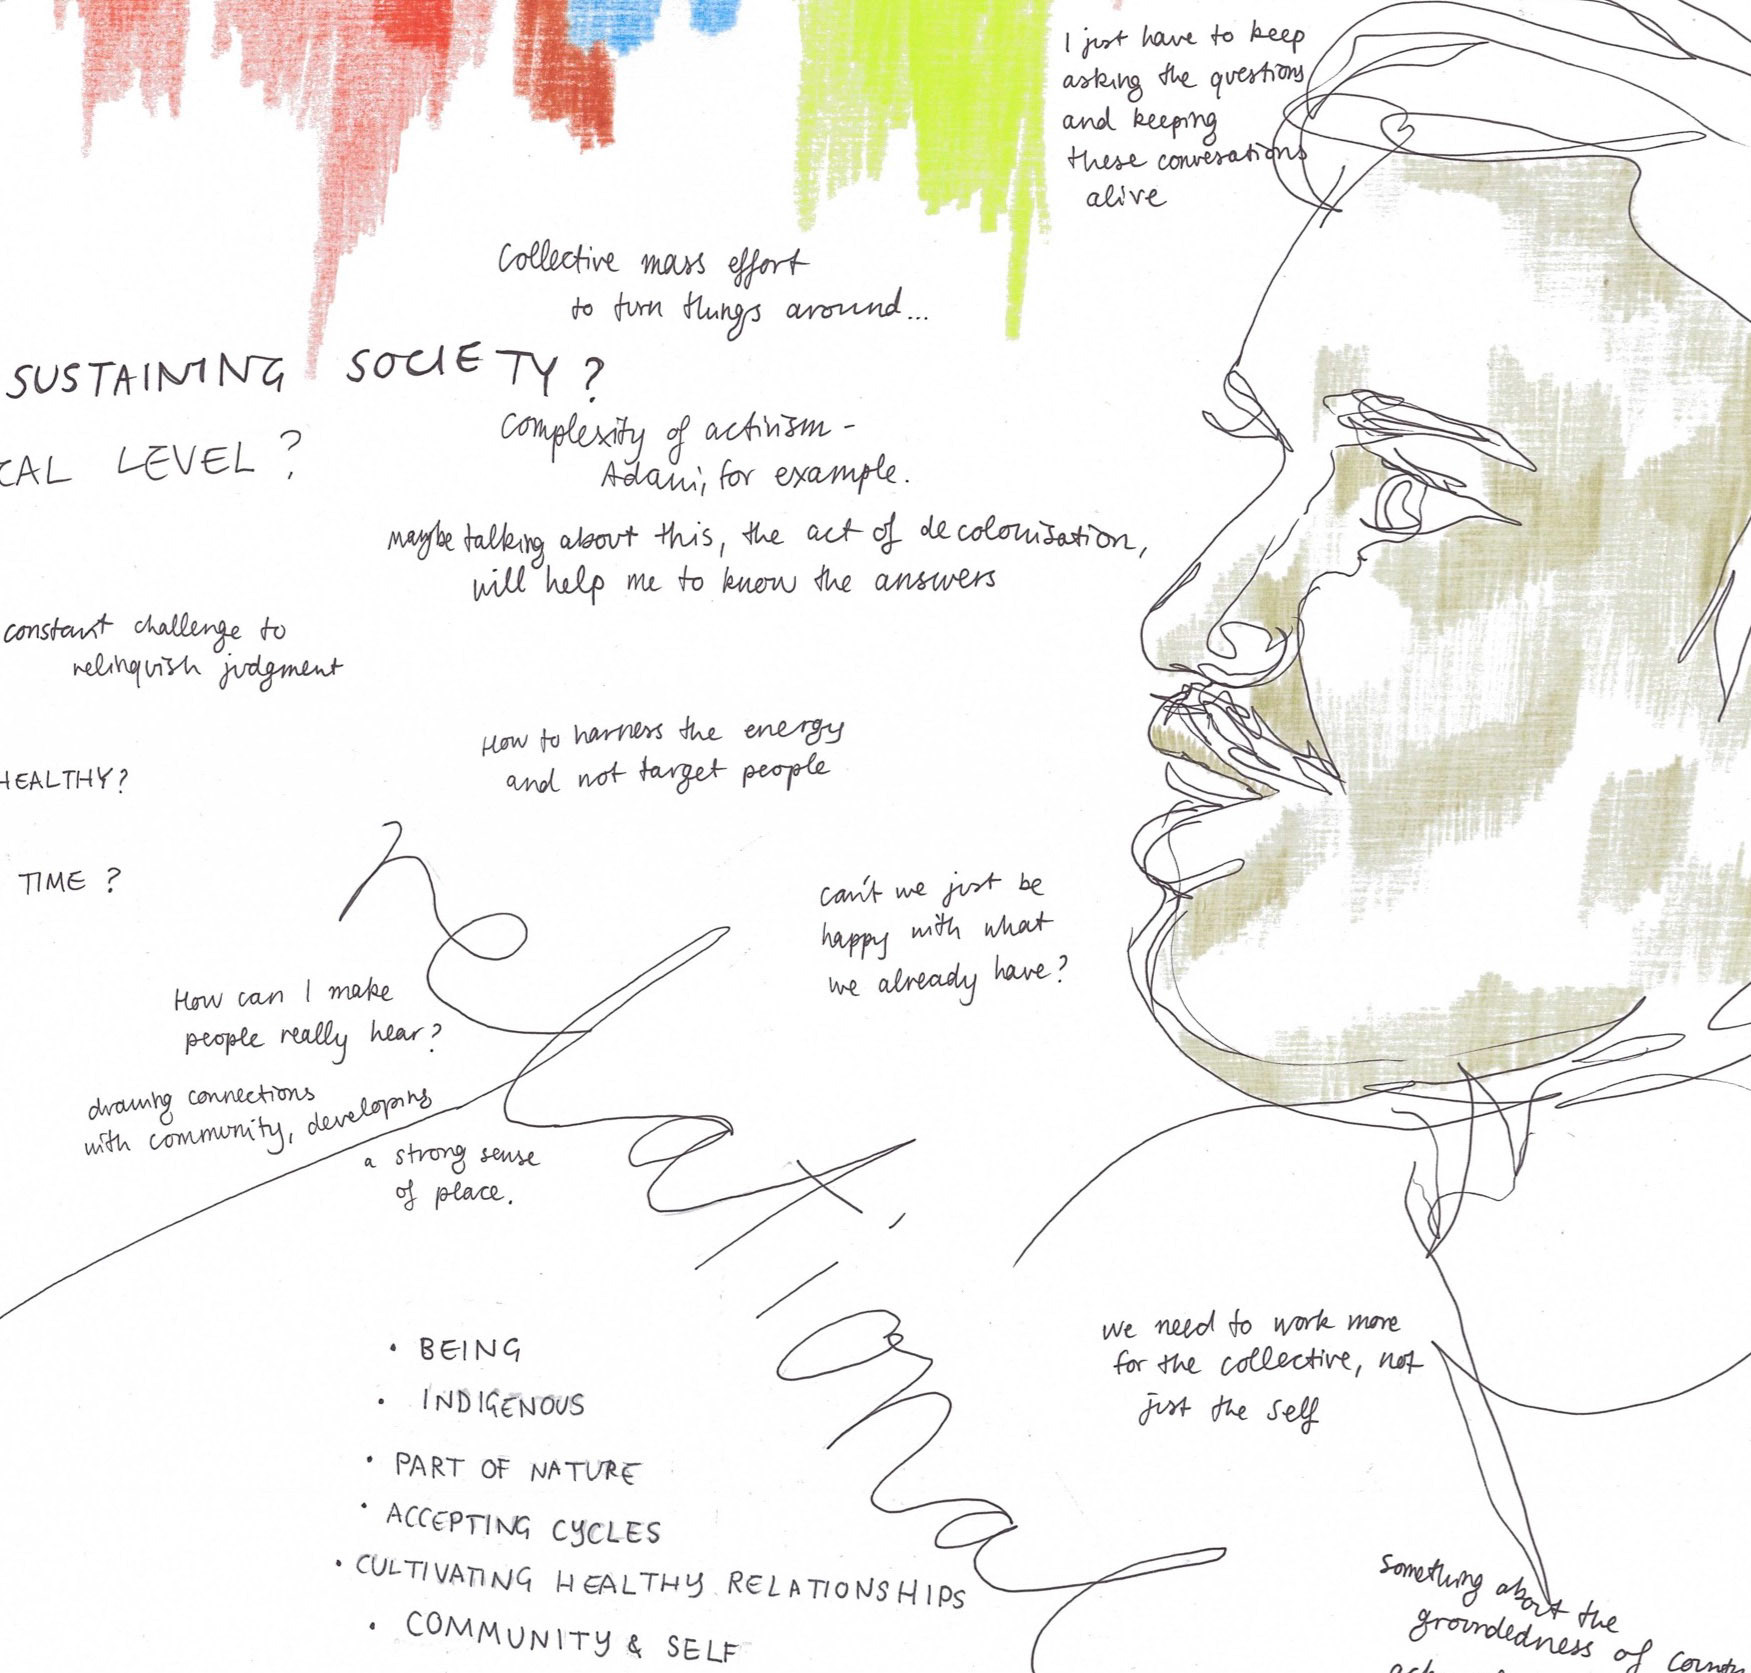 I just have to keep
asking the questions
and keeping
these convesations
alive
Collective mass effort
to turn things around...
SUSTAINING SOCIETY?
CAL LEVEL?
Complexity of activism -
Adani, for example.
maybe talking about this, the act of decolonisation,
will help me to know the answers
constant challenge to
relinquish judgment
How to harness the energy
and not target people
HEALTHY?
TIME?
can't we just be
happy with what
we already have?
How can I make
people really hear?
drawing connections
with community, developing
a strong sense
of place.
we need to work more
for the collective, not
just the self
• BEING
• INDIGENOUS
• PART OF NATURE
• ACCEPTING CYCLES
• CULTIVATING HEALTHY RELATIONSHIPS
• COMMUNITY & SELF
something about the
groundedness of